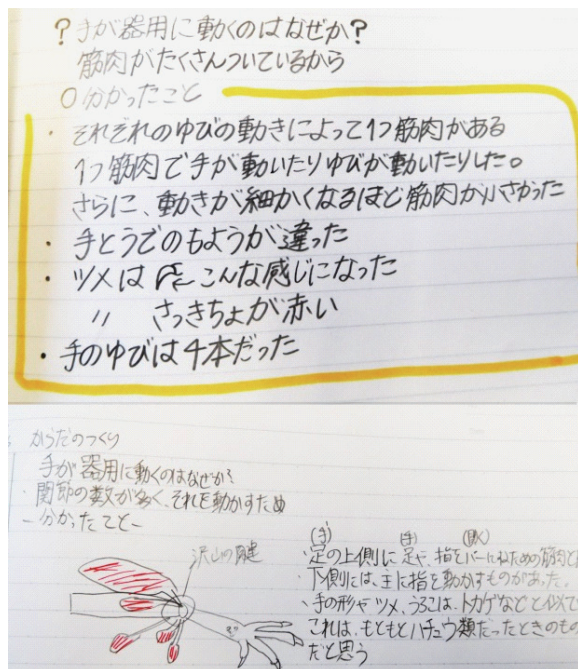 ？手が器用に動くのはなぜか？
筋肉がたくさんついているから
○分かったこと
・それぞれのゆびの動きによって1つ筋肉がある
1つ筋肉で手が動いたりゆびが動いたりした。
さらに、動きが細かくなるほど筋肉が小さかった
・手とうでのもようが違った
・ツメは こんな感じになった
〃 さっきちょが赤い
・手のゆびは4本だった
からだのつくり
手が器用に動くのはなぜか？
・関節の数が多く、それを動かすため
－分かったこと－
沢山の腱
(手) (手) (開く)
・足の上側に足や、指をパーにするための筋肉と
・下側には、主に指を動かすものがあった。
・手の形やツメ、うろこは、トカゲなどと似て
これは、もともとハチュウ類だったときのもの
だと思う